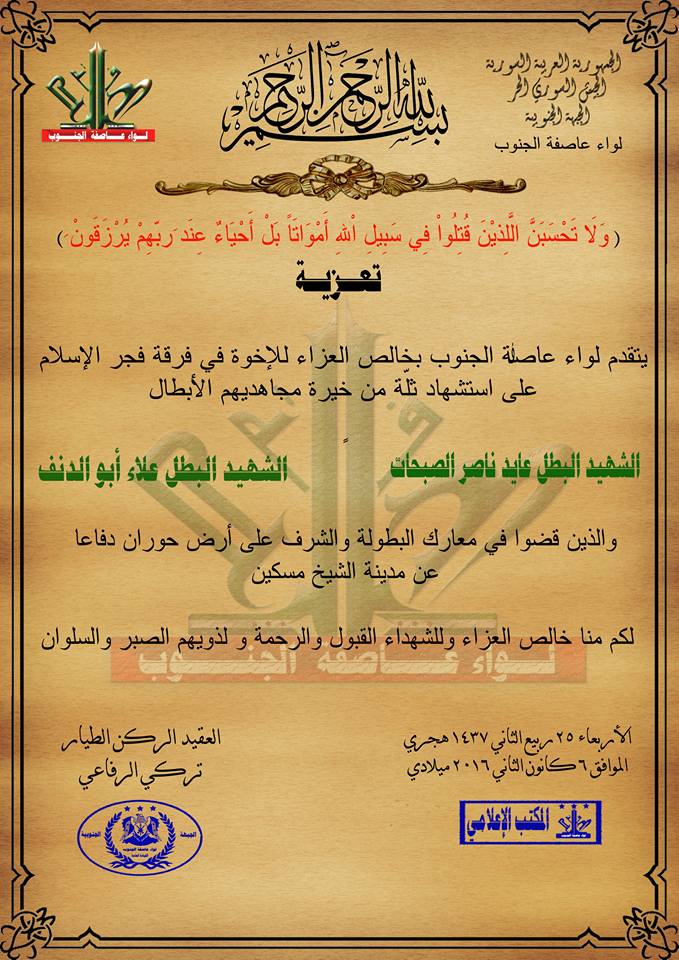 الجمهورية العربية السورية
الجيش السوري الحر
الجبهة الجنوبية
لواء عاصفة الجنوب
بسم الله الرحمن الرحيم
لـواء عـاصفة الجنـوب
(وَلَا تَحْسَبَنَّ الَّذِيْنَ قُتِلُواْ فِي سَبِيلِ اللهِ أَمْوَاتَاً بَلْ أَحْيَاءٌ عِنَد رَبِّهِمْ يُرْزَقَونْ)
تعـزيـة
يتقدم لواء عاصفة الجنوب بخالص العزاء للإخوة في فرقة فجر الإسلام
على استشهاد ثلّة من خيرة مجاهديهم الأبطال
الشهيد البطل عايد ناصر الصبحات
الشهيد البطل علاء أبو الدنف
والذين قضوا في معارك البطولة والشرف على أرض حوران دفاعا
عن مدينة الشيخ مسكين
لكم منا خالص العزاء وللشهداء القبول والرحمة و لذويهم الصبر والسلوان
لـواء عـاصفة الجنـوب
الأربعاء ٢٥ ربيع الثاني ١٤٣٧ هجري
الموافق ٦ كانون الثاني ٢٠١٦ ميلادي
العقيد الركن الطيار
تركي الرفاعي
المكتب الإعلامي
الجبهة
الجنوبية
لواء عاصفة الجنوب
القيادة العامة